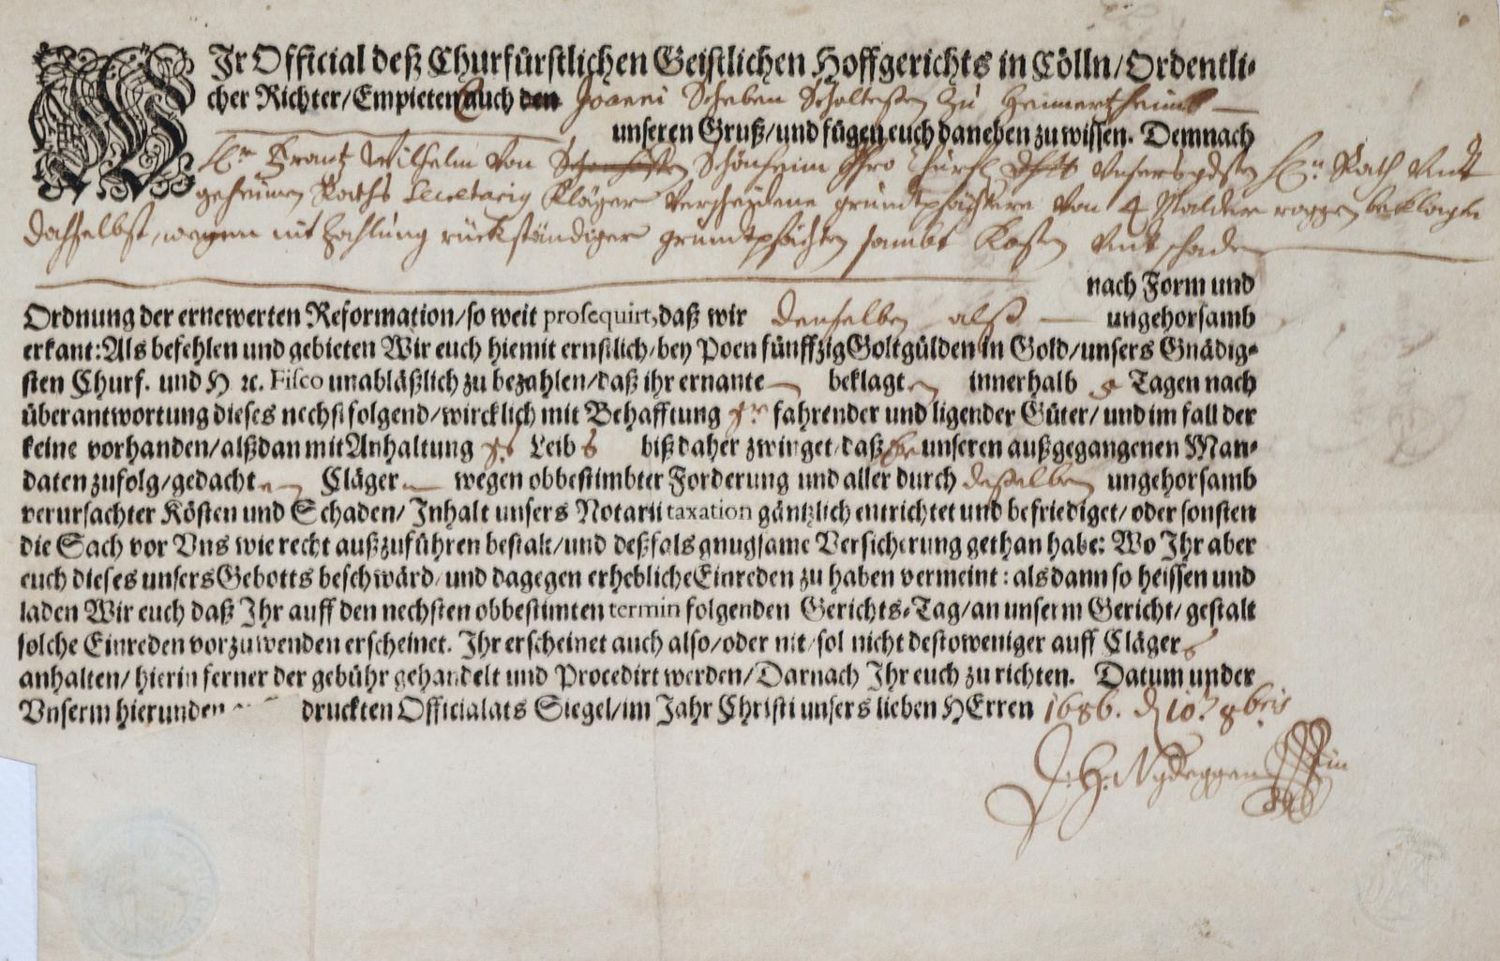 WIr Official deß Churfürstlichen Geistlichen Hoffgerichts in Cölln/Ordentli-
cher Richter/Empieten euch den Joanni Scheben Scholtesen zu Heimertzheimb
unseren Gruß/und fügen euch daneben zu wissen. Demnach
Hr Frantz Wilhelm von Schönheim Ihro Churfl. Unsers gdsten Hn Rath undt
geheimen Raths Secretarig Kläger verscheidene grundtpfächtere von 4 Malder roggen beklagte
dahselbst, wegen nit Zahlung rückständiger grundtpfächten sambt Kosten undt schaden
nach Form und
Ordnung der ernewerten Reformation/so weit prosequirt, daß wir denselben alß ungehorsamb
erkant: Als befehlen und gebieten Wir euch hiemit ernstlich/bey Poen fünffzig Goltgülden in Gold/unsers Gnädig-
sten Churf. und H ꝛc. Fisco unabläßlich zu bezahlen/daß ihr ernante beklagten innerhalb Tagen nach
überantwortung dieses nechstfolgend/wircklich mit Behafftung fahrender und ligender Güter/ und im fall der
keine vorhanden/alßdan mit Anhaltung Leibs biß daher zwinget/daß unseren außgegangenen Man-
daten zufolg/gedachten Cläger wegen obbestimbter Forderung und aller durch desselben ungehorsamb
verursachter Kösten und Schaden/Inhalt unsers Notarii taxation gäntzlich entrichtet und befriediget/oder sonsten
die Sach vor Uns wie recht außzuführen bestalt/und deßfals gnugsame Versicherung gethan habe: Wo Ihr aber
euch dieses unsers Gebotts beschwärd/und dagegen erhebliche Einreden zu haben vermeint: als dann so heissen und
laden Wir euch daß Ihr auff den nechsten obbestimten termin folgenden Gerichts-Tag/an unserm Gericht/gestalt
solche Einreden vorzuwenden erscheinet. Ihr erscheinet auch also/oder nit/sol nicht destoweniger auff Clägers
anhalten/hierin ferner der gebühr gehandelt und Procedirt werden/Darnach Ihr euch zu richten. Datum under
Unserm hierunden druckten Officialats Siegel/im Jahr Christi unsers lieben HErren 1686. d 10t 8bris
J. H. Nydeggen